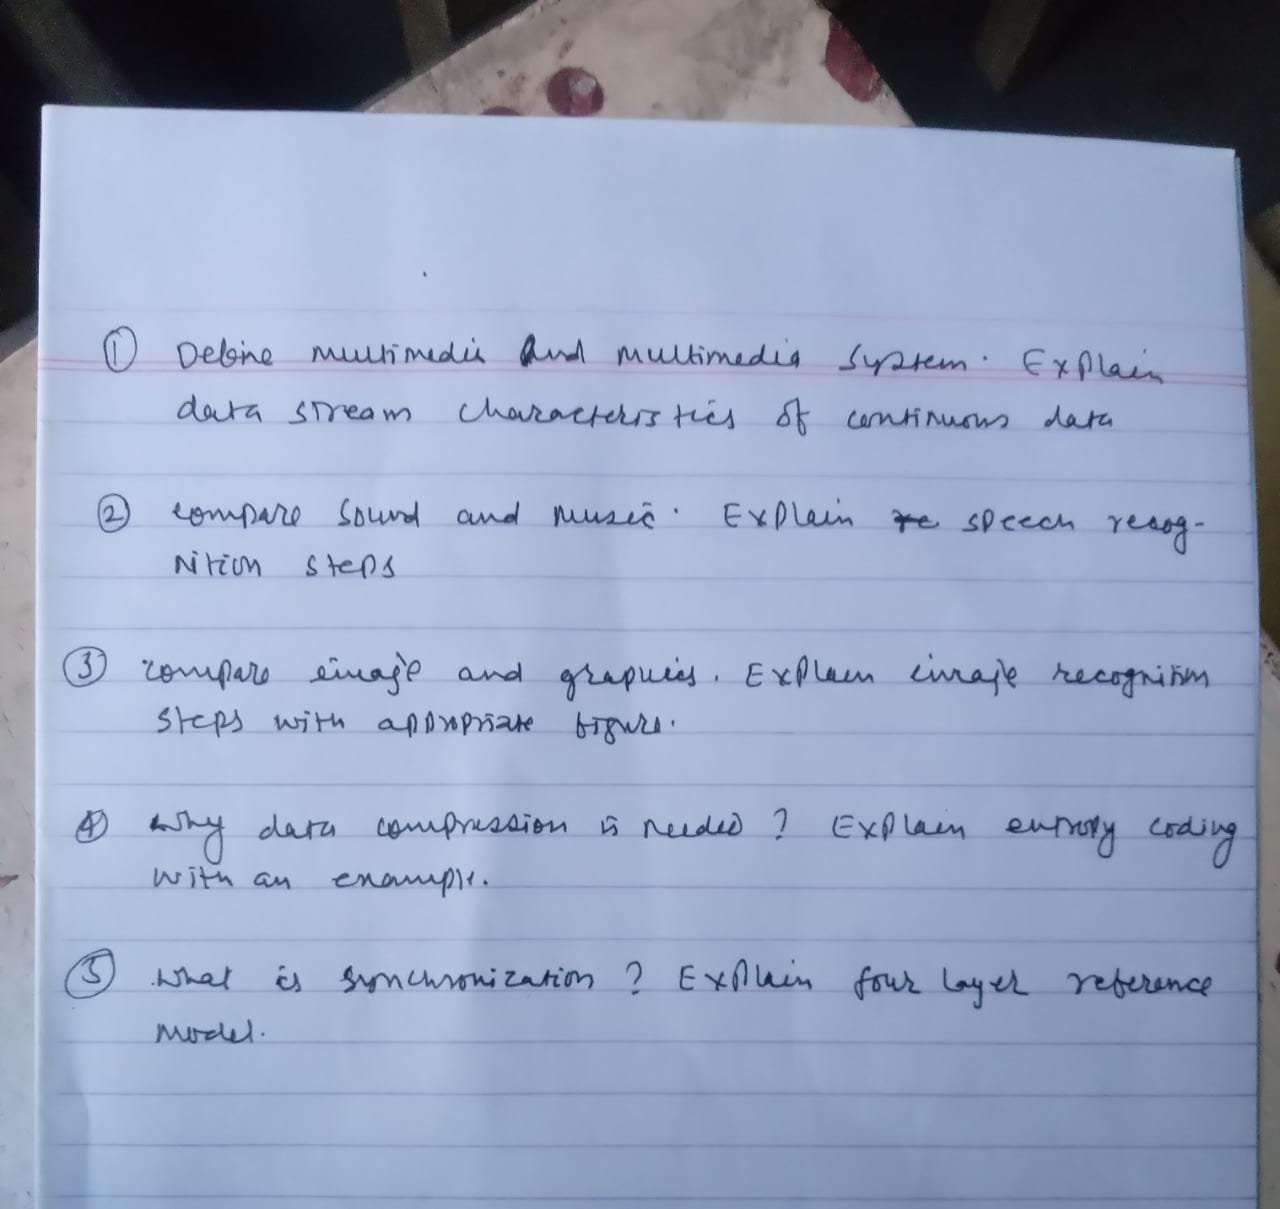 ① Define multimedia and multimedia system. Explain
data stream characteristics of continuous data
② compare sound and music. Explain speech recog-
nition steps
③ compare image and graphics. Explain image recognition
steps with appropriate figure.
④ Why data compression is needed ? Explain entropy coding
with an example.
⑤ What is synchronization ? Explain four layer reference
model.